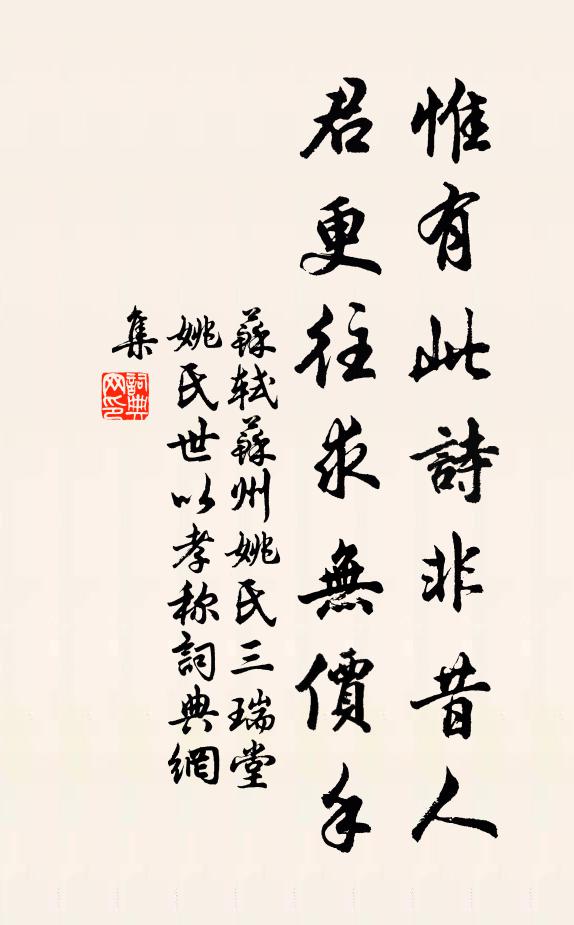 惟有此詩非昔人
君更往求無價手
蘇軾蘇州姚氏三瑞堂
姚氏世以孝称詞典網
集
詞典网印